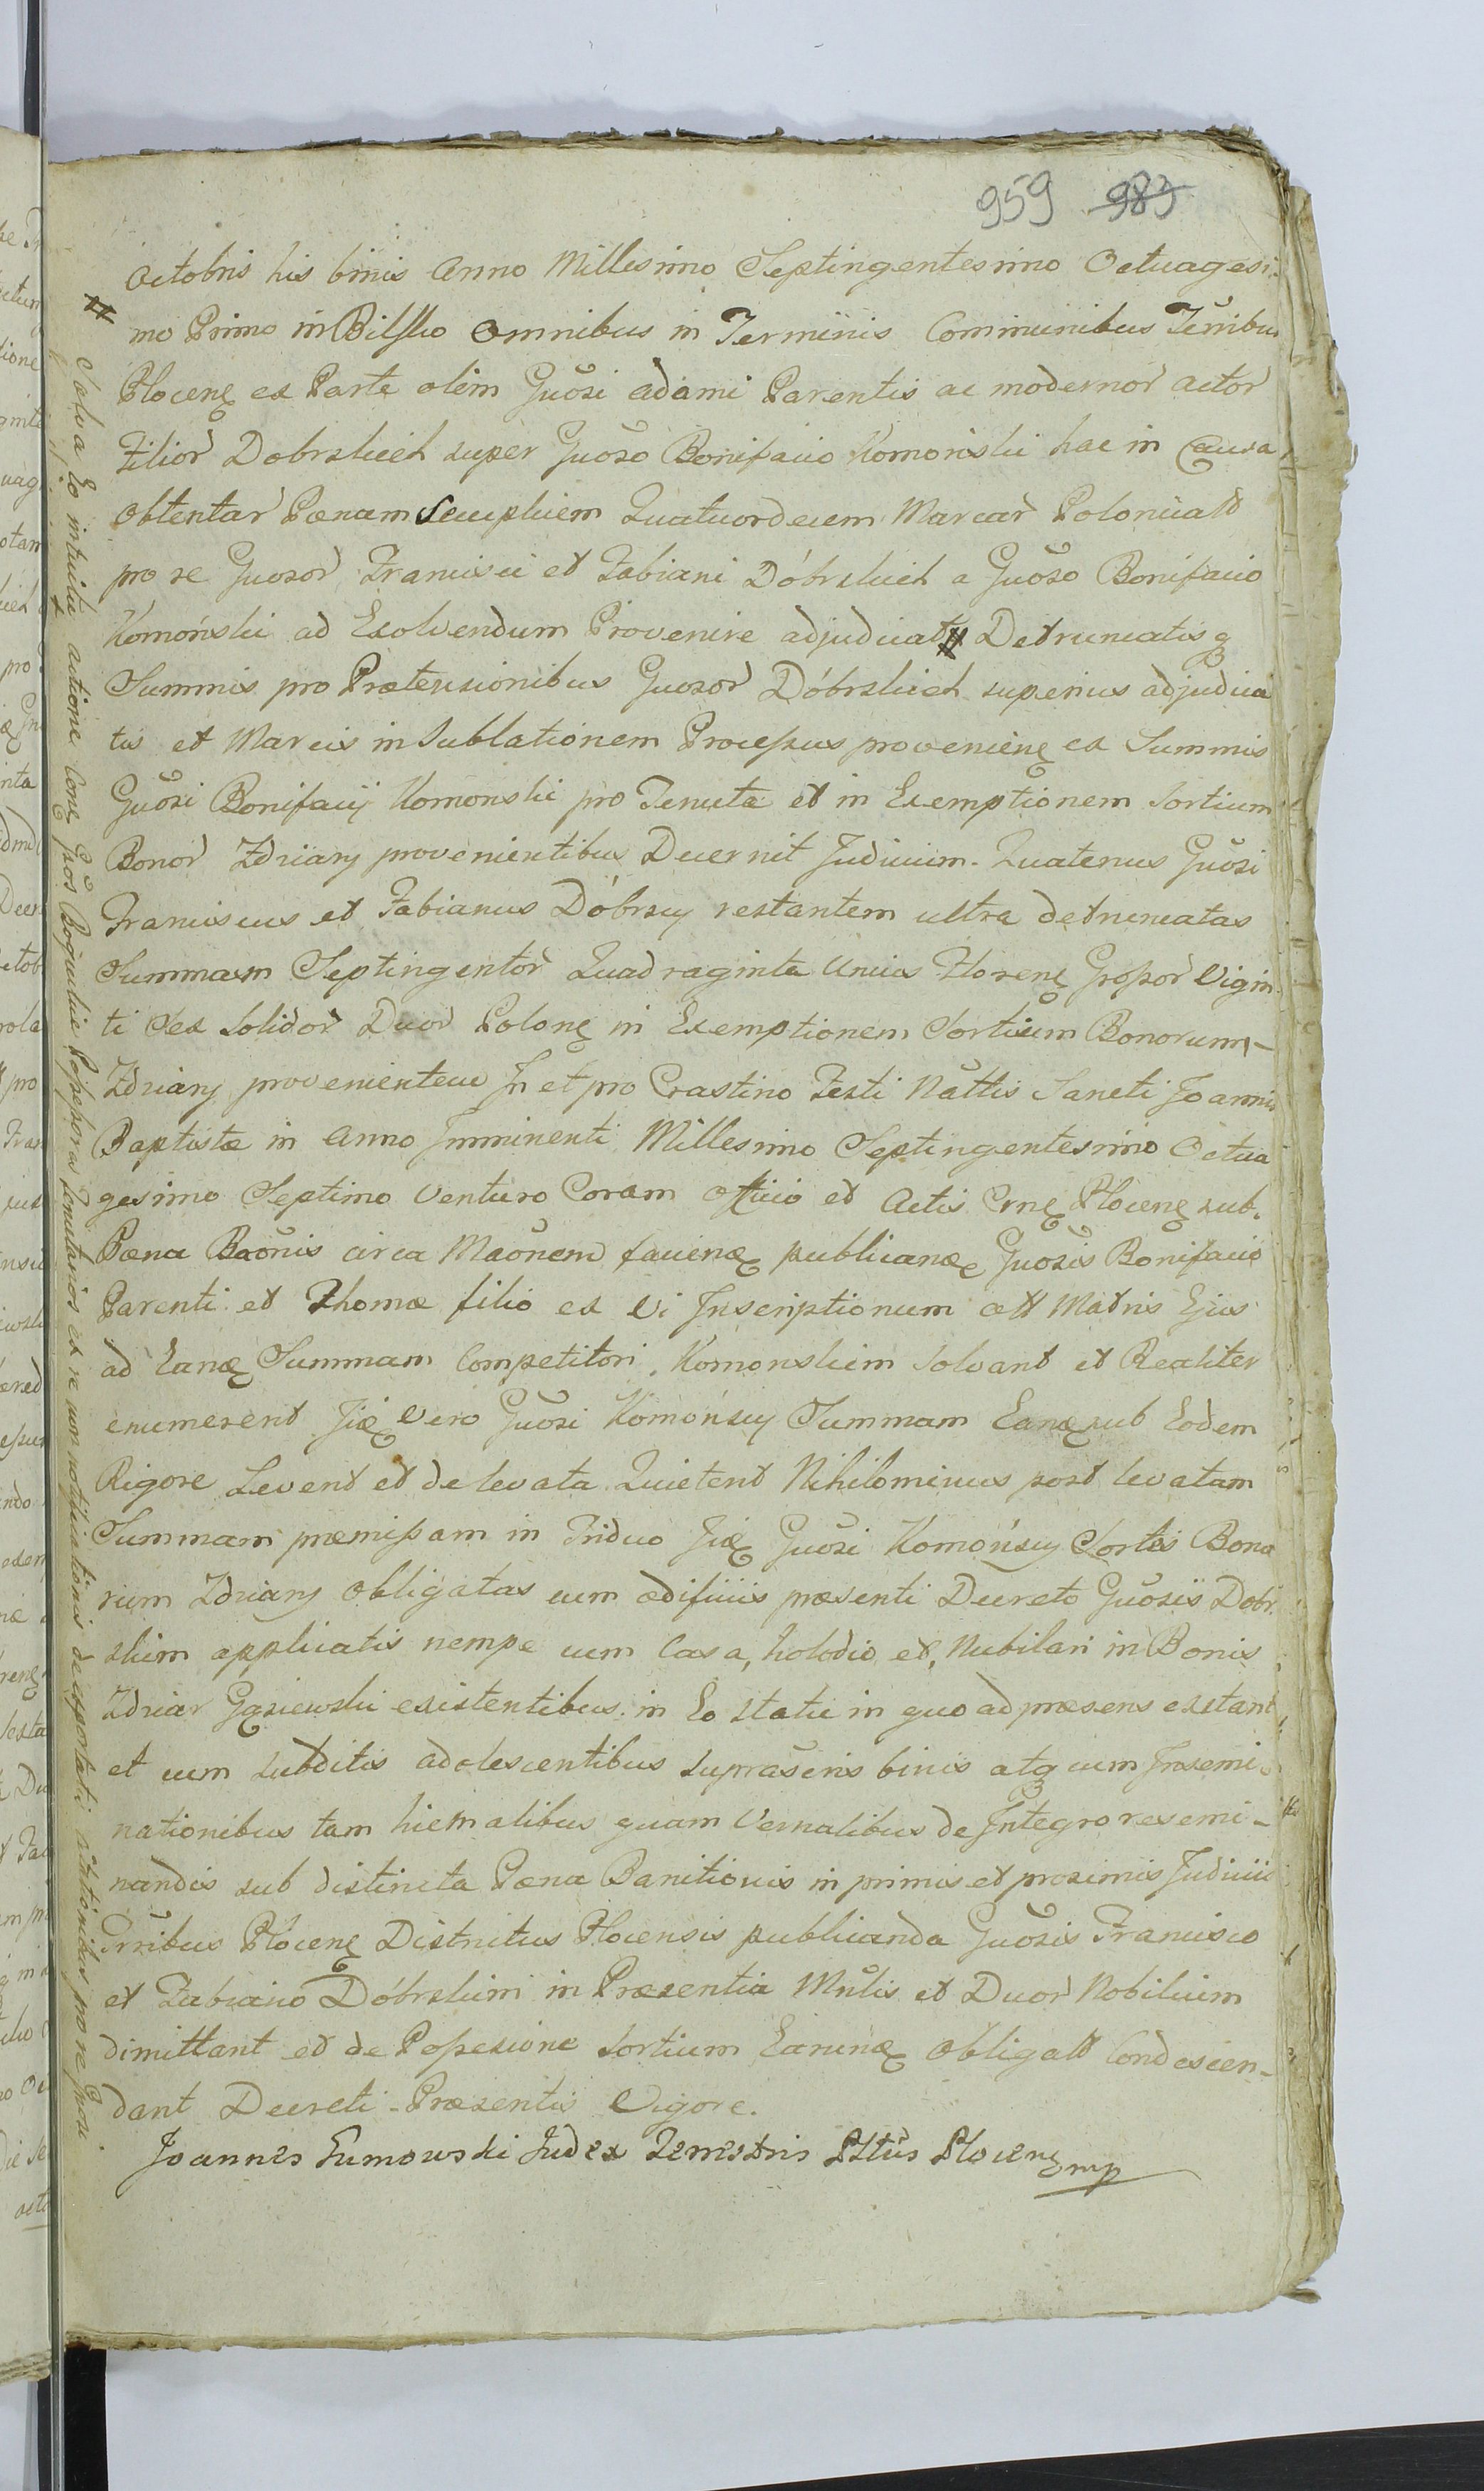 959 983
Octobris his binis Anno Millesimo Septingentesimo Octuagesi-
mo Primo in Bilsko Omnibus in Terminis Communibus Terribus
Plocenę ex Parte olim Gnosi Adami Parentis ac modernor Actor
Filior Dobrskich super Gnoso Bonifacio Komoński hac in Causa
Obtentar Pœnam Quatuordecem Marcar Polonicall
pro se Gnosor Francisci et Fabiani Dóbrskich a Gnoso Bonifacio
Komoński ad Exolvendum Provenire adjudicat # Detruncatisq
Summis pro Prætensionibus Gnosor Dóbrskich superius adjudica
tis et Marcis in Sublationem Processus provenienę ex Summis
Gnosi Bonifacij Komonski pro Tenuta et in Exemptionem Sortium
Bonor Zdziary provenientibus Decernit Judicium. Quatenus Gnosi
Franciscus et Fabianus Dóbrscy restantem ultra detruncatas
Summam Septingentor Quadraginta Unius Florenę Grossor Vigin
ti Sex Solidor Duor Polonę in Exemptionem Sortium Bonorum
Zdziary provenientem In et pro Crastino Festi Nattis Sancti Joannis
Baptistæ in Anno Imminenti Millesimo Septingentesimo Octua
gesimo Septimo Venturo Coram Officio et Actis Crnę Plocenę sub
Pœna Baonis circa Maonem facienæ publicanæ Gnosis Bonifacio
Parenti et Thomæ filio ex Vi Inscriptionum Matris Ejus
ad Eanæ Summam Competitori Komonskim Solvant et Realiter
enumerent Jię Vero Gnosi Komońscy Summam Eanæ sub Eodem
Rigore Levent et de levata Quietent Nihilominus post levatam
Summam præmissam in Triduo Jię Gnosi Komońscy Sortes Bono
rum Zdziary Obligatas cum ædificiis præsenti Decreto Gnosis Dobr
skim applicatis nempe cum Casa, holodio et, Nubilari in Bonis
Zdziar Gąsiewski existentibus in Eo statu in quo ad præsens exstant
et cum Subditis adolescentibus suprascris binis atq cum Insemi-
nationibus tam hiemalibus quam Vernalibus de Integro resemi-
nandis sub distincta Pœna Banitionis in primis et proximis Judiciis
Trribus Plocenę Districtus Plocensis publicanda Gnosis Francisco
et Fabiano Dóbrskim in Præsentia Mnlis et Duor Nobilium
dimittant et de Possesione Sortium Earunæ Obligall Condescen-
dant Decreti Præsentis Vigore.
Joannes Gumowski Judex Terrestris Pttus Plocenę mp
# Salva Eo intuitu actione Conę Gnos Possessores Tenutarios ex re non notificationis de pro se Gnosi